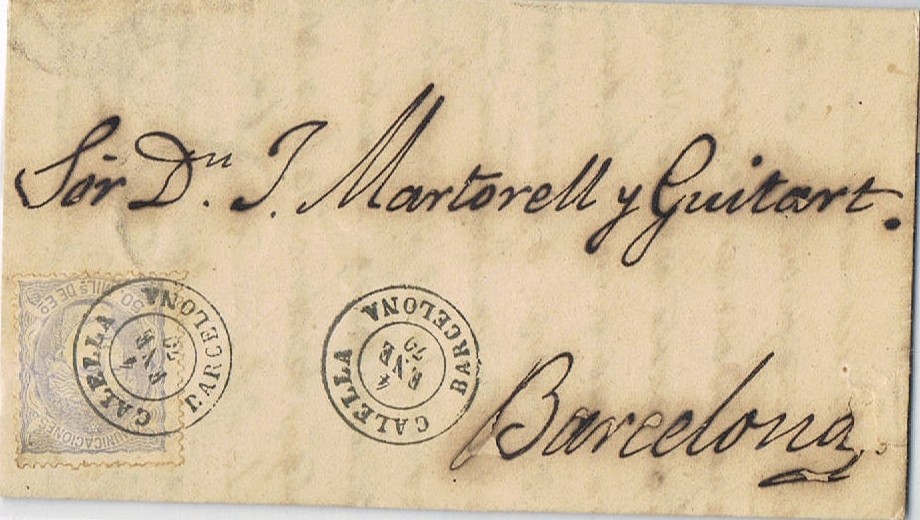 Sör Dn. J. Martorell y Guitart.
Barcelona
CALELLA
4
ENE
BARCELONA
CALELLA
4
ENE
BARCELONA
50 MILS DE Eo